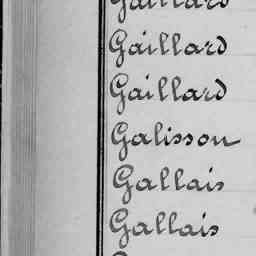 Gaillard
Gaillard
Gaillard
Galisson
Gallais
Gallais